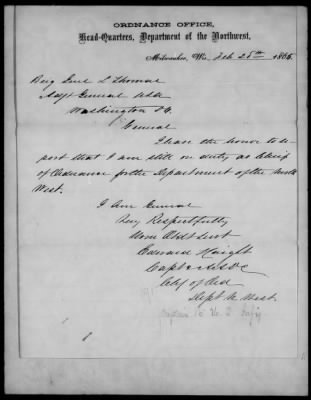 ORDNANCE OFFICE,
Head-Quarters, Department of the Northwest,
Milwaukee, Wis., Feb 28th 1865
Brig Genl L Thomas
Adjt General USA
Washington D.C.
General
I have the honor to re
port that I am still on duty as Chief
of Ordnance for the Department of the North
West.
I Am General
Very Respectfully
Your Obdt Servt
Edward Haight
Capt & ADC
Chf of Ord
Dept N West
Captain 16 U. S. Infy